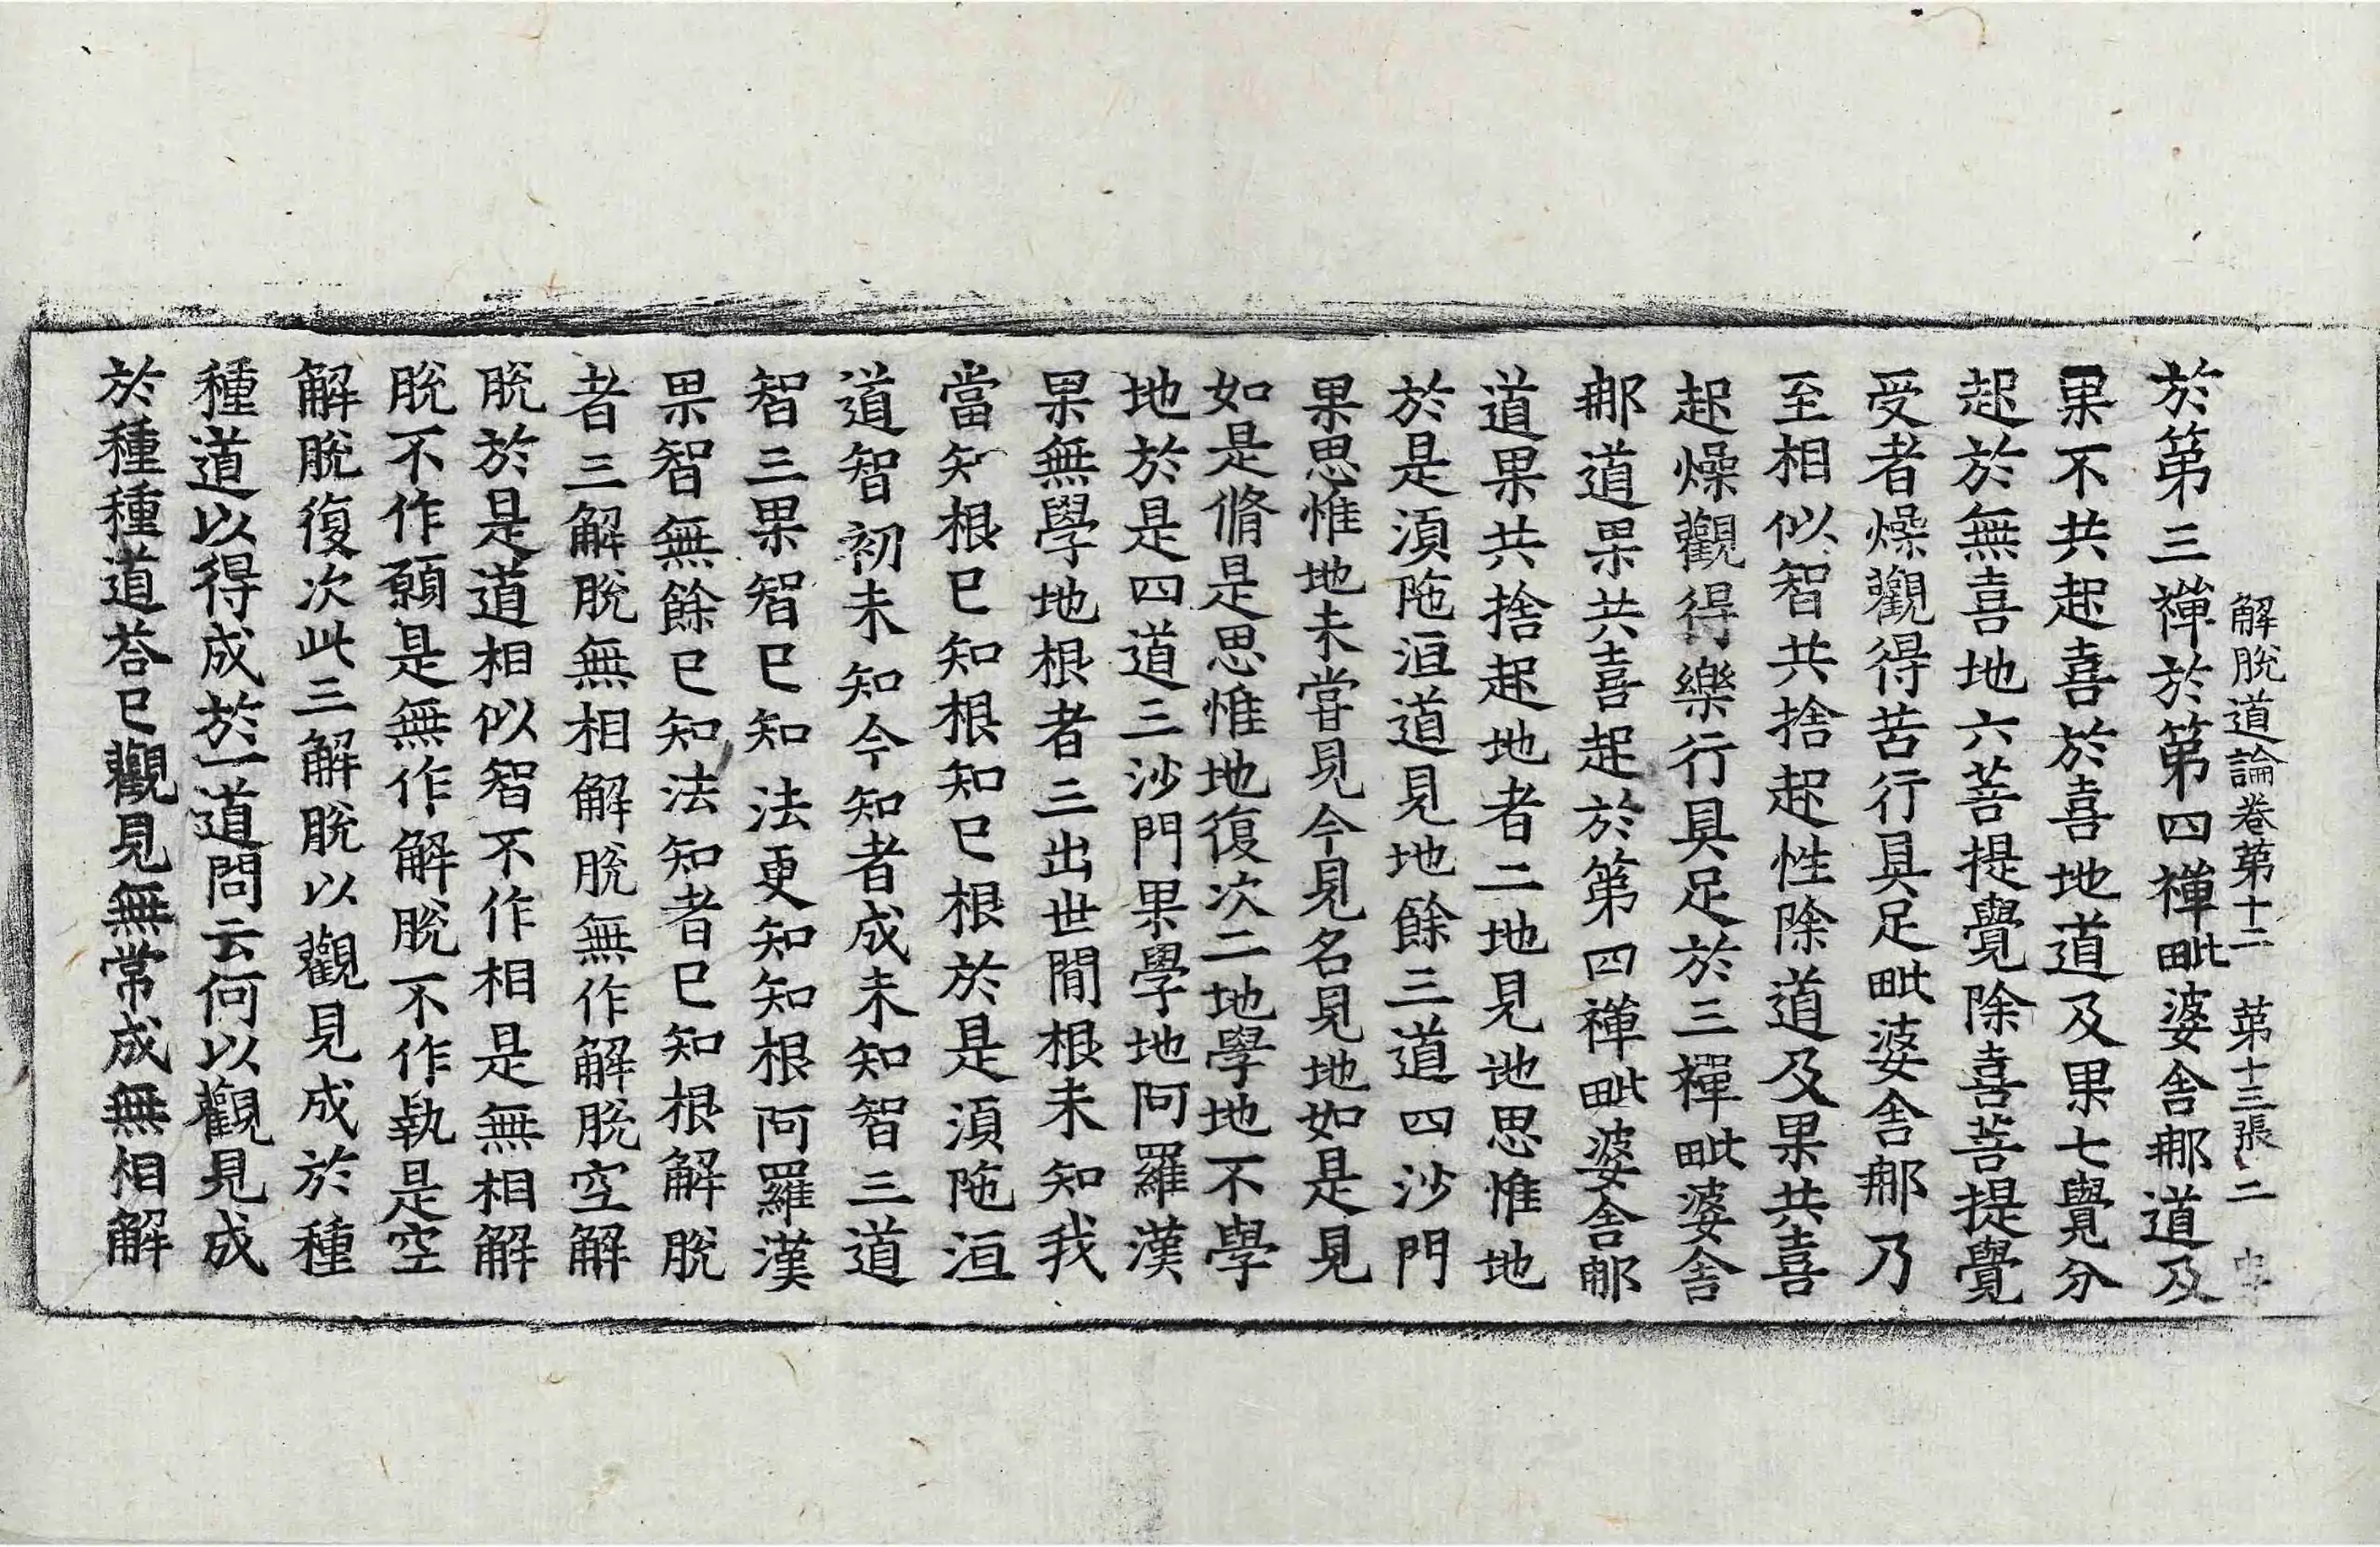 解脫道論卷第十二 第十三張 二
於第三禪於第四禪毗婆舍那道及
果不共起喜於喜地道及果七覺分
起於無喜地六菩提覺除喜菩提覺
受者燥觀得苦行具足毗婆舍那乃
至相似智共捨起性除道及果共喜
起燥觀得樂行具足於三禪毗婆舍
那道果共喜起於第四禪毗婆舍那
道果共捨起地者二地見地思惟地
於是須陁洹道見地餘三道四沙門
果思惟地未甞見今見名見地如是見
如是脩是思惟地復次二地學地不學
地於是四道三沙門果學地阿羅漢
果無學地根者三出世間根未知我
當知根已知根知已根於是須陁洹
道智初未知今知者成未知智三道
智三果智已知法更知知根阿羅漢
果智無餘已知法知者已知根解脫
者三解脫無相解脫無作解脫空解
脫於是道相似智不作相是無相解
脫不作願是無作解脫不作執是空
解脫復次此三解脫以觀見成於種
種道以得成於一道問云何以觀見成
於種種道荅已觀見無常成無相解